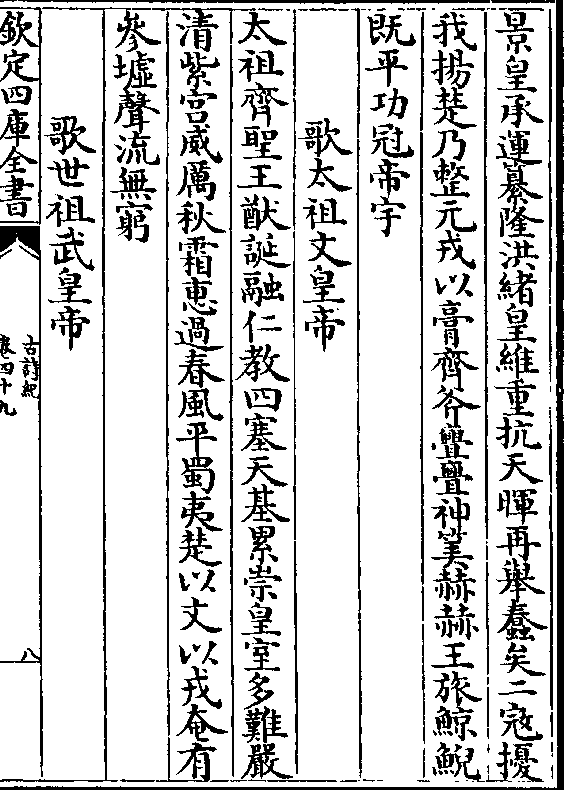 景皇承運纂隆洪緒皇維重抗天暉再舉蠢矣二寇擾
我揚楚乃整元戎以膏齊斧亹亹神筭赫赫王旅鯨鯢
既平功冠帝宇
歌太祖文皇帝
太祖齊聖王猷誕融仁教四塞天基累崇皇室多難嚴
清紫宮威厲秋霜惠過春風平蜀夷楚以文以戎奄有
參墟聲流無窮
歌世祖武皇帝
欽定四庫全書
古詩紀
卷四十九
八